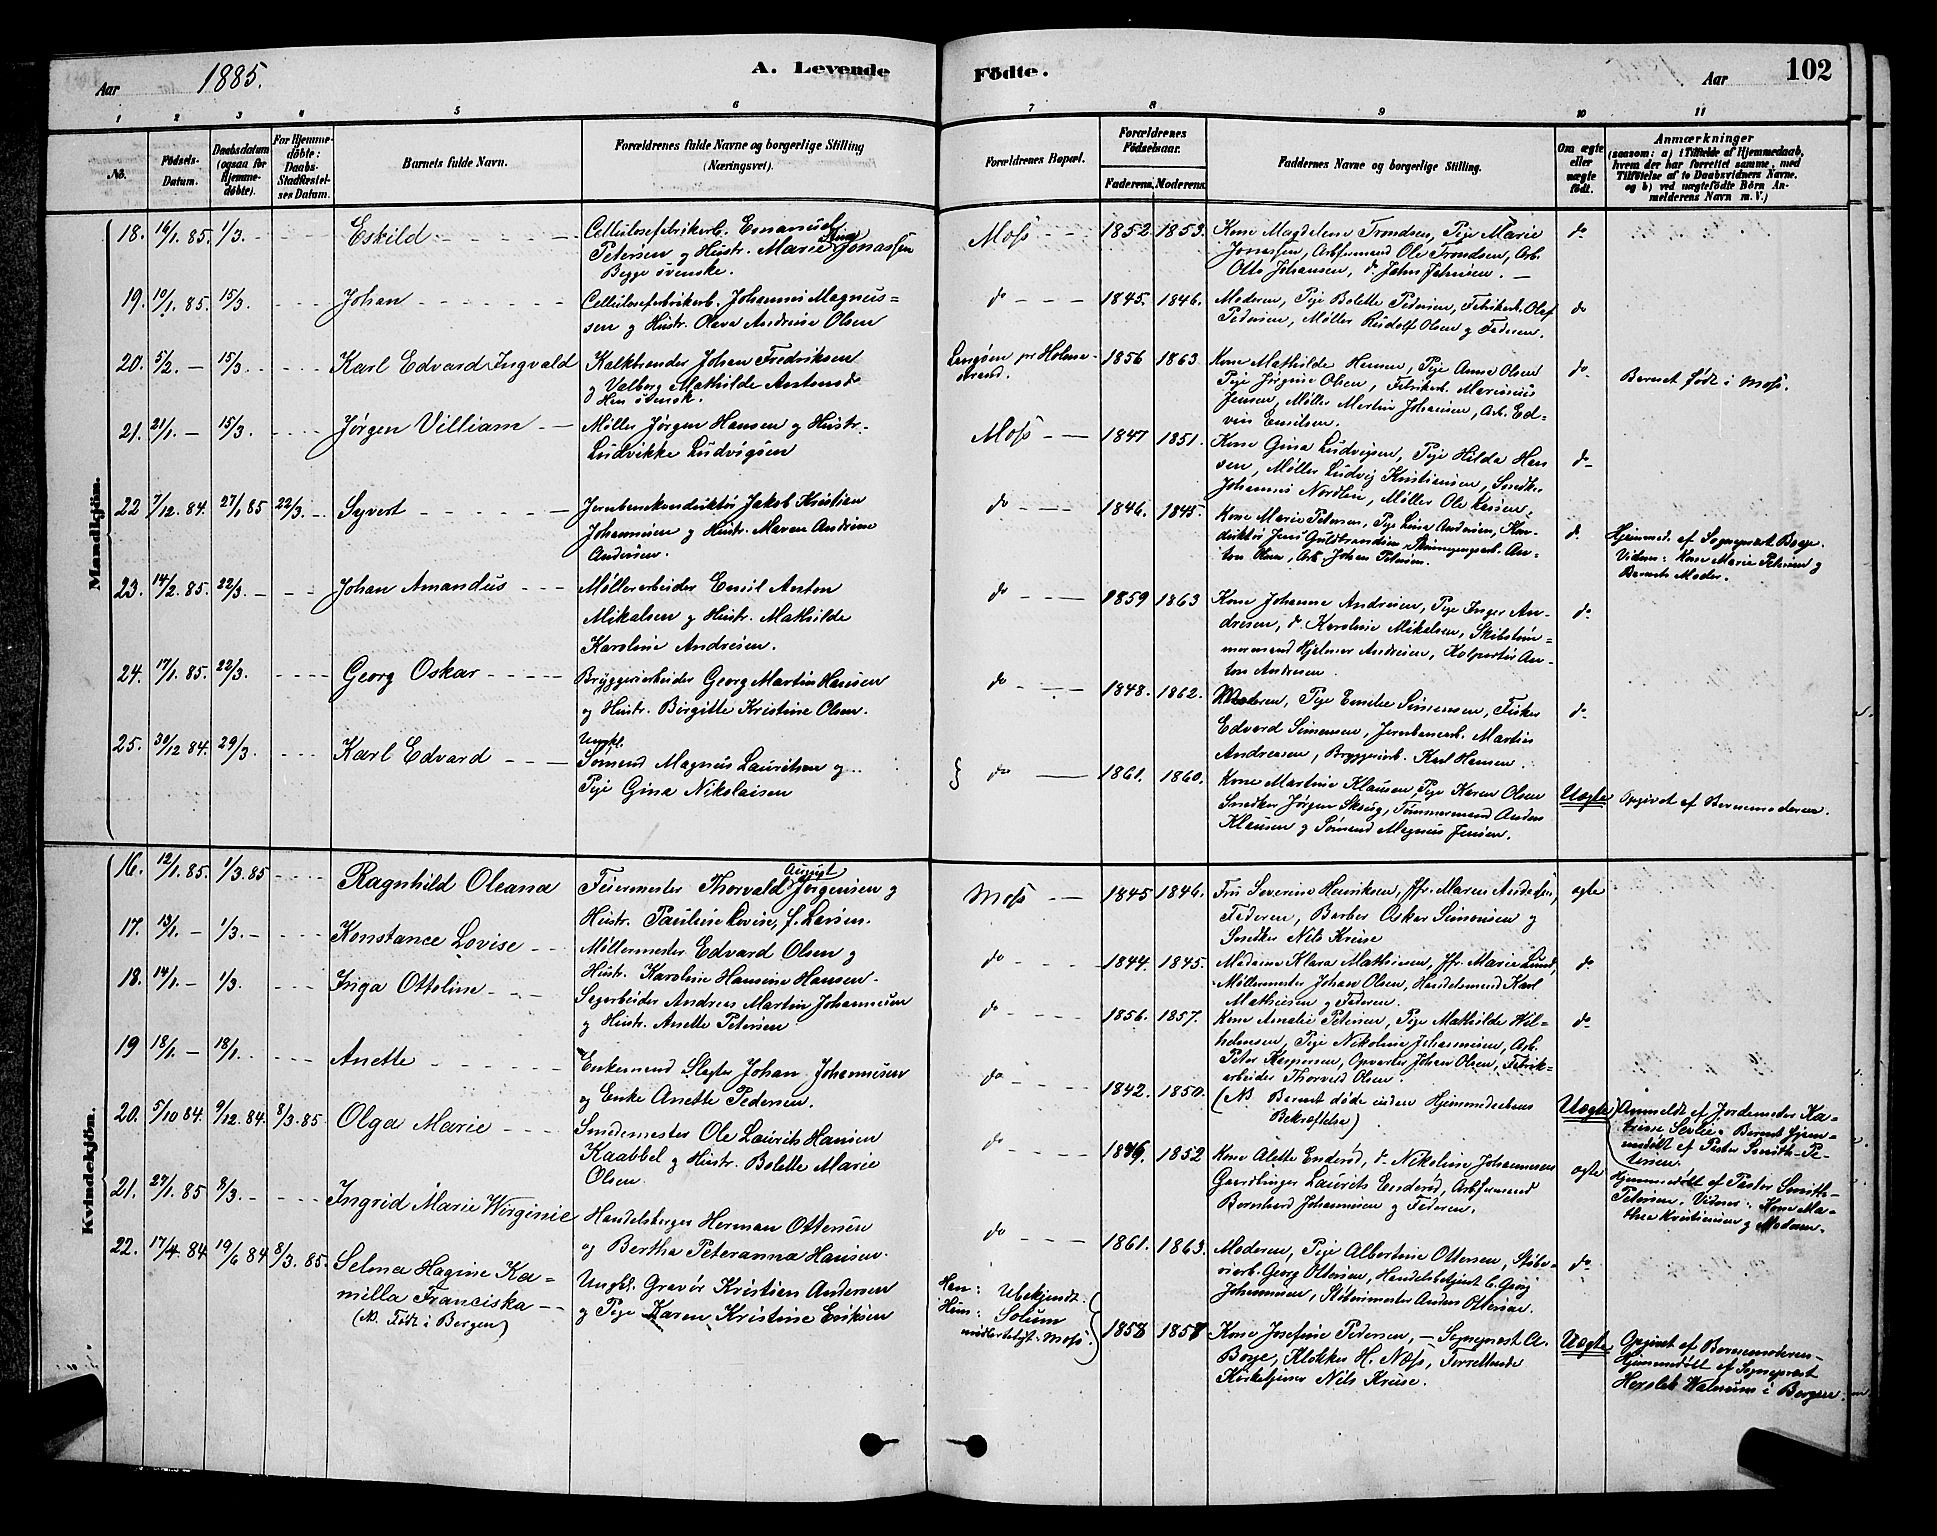 Aar 1885. A. Levende Födte. Aar 102
1 2 3 4 5 6 7 8 9 10 11
No. Födsels-Datum. Daabsdatum (ogsaa for Hjemme-döbte). For Hjemme-döbte: Daabs-Stadfæstel-ses Datum. Barnets fulde Navn. Forældrenes fulde Navne og borgerlige Stilling (Næringsvei). Forældrenes Bopæl. Forældrenes Födselsaar. Faderens. Moderens. Faddernes Navne og borgerlige Stilling. Om ægte eller uægte födt. Anmærkninger
(saasom: a) i Tilfælde af Hjemmedaab, hvem der har forrettet samme, med Tilföielse af to Daabsvidners Navne, og b) ved uægtefödte Börn An-melderens Navn m. V.)
Mandkjön.
18. 16/1. 85. 1/3. Eskild Cellulosefabrikarb. Emanuel
Petersen og Hustr. Marie Stina Jonassen
Begge svenske.
Moss 1852 1853. Kone Magdelene Trondsen, Pige Marie
Jonassen, Arbformand Ole Trondsen, Arb.
Otto Johansen, do. John Johnsen. do
19. 10/1. 85. 15/3. Johan Cellulosefabrikarb. Johannes Magnus=
sen og Hustr. Olava Andrine Olsen
do 1845. 1846. Moderen, Pige Bolette Pedersen, Fabrikarb. Olaf
Pedersen, Møller Rudolf Olsen og Faderen. do
20. 5/2. 15/3. Karl Edvard Ingvald Kalkbrænder Johan Fredriksen
og Valborg Mathilde Antonsdr
Han svensk.
Langøen pr Holme-
strand. 1856 1863. Kone Mathilde Hansen, Pige Anne Olsen
Pige Jørgine Olsen, Fabrikarb. Marinius
Jensen, Møller Martin Johansen, Arb. Ed-
vin Emilsen. do. Barnet født i Moss.
21. 21/1. 15/3. Jørgen Villiam Møller Jørgen Hansen og Hustr.
Ludvikke Ludvigsen
Moss 1847 1851. Kone Gina Ludvigsen, Pige Hilda Han
sen, Møller Ludvig Kristiansen, Snedker
Johannes Nordlie, Møller Ole Larsen. do
22 7/12. 84. 27/1 85 22/3. Syvert Jernbanekonduktør Jakob Kristian
Johannesen og Hustr. Maren Andrine
Andersen.
do 1846. 1845. Kone Marie Petersen, Pige Lina Andersen, Kon-
duktør Jens Guldbrandsen, An-
ton Olsen, Arb. Johan Petersen. do. Hjemmed. af Sognepræst Borge.
Vidner: Kone Marie Petersen og
Barnets Moder.
23. 14/2. 85. 22/3. Johan Amandus Møllerarbeider Emil Anton
Mikalsen og Hustr. Mathilde
Karoline Andresen.
do 1859 1863 Kone Johanne Andresen, Pige Inger An-
dresen, do. Karoline Mikalsen, Skibstøm-
mermand Hjalmar Andresen, Kolportør An-
ton Andresen. do
24. 17/1. 85. 22/3. Georg Oskar Bryggeriarbeider Georg Martin Hansen
og Hustr. Birgitte Kristine Olsen.
do 1848. 1862. Moderen, Pige Emilie Simensen, Fisker
Edvard Simensen, Jernbanearb. Martin
Andreasen, Bryggeriarb. Karl Hansen. do.
25. 30/12 84. 29/3. Karl Edvard Ungkl.
Sømand Magnus Lauritsen og
Pige Gina Nikolaisen
do 1861. 1860. Kone Martine Klausen, Pige Karen Olsen
Snedker Jørgen Skaug, Tømmermand Anders
Klausen og Sømand Magnus Jensen. Uægte Opgivet af Barnemoderen.
Kvindekjön.
16. 12/1. 85. 1/3. 85 Ragnhild Oleana Feiermester Thorvald August Jørgensen og
Hustr. Pauline Lovise, f. Larsen.
Moss 1845 1846. Fru Severine Henriksen, Jfr. Maren Andersen,
Faderen, Barber Oskar Simonsen og
Snedker Nils Kruse ægte
17. 13/1. 1/3. Konstance Lovise Møllermester Edvard Olsen og
Hustr. Karoline Hansine Hansen.
do 1844. 1845. Madame Klara Mathisen, Jfr. Marie Lund,
Møllermester Johan Olsen, Handelsmand Karl
Mathisen og Faderen. do.
18. 14/1. 1/3. Inga Otteline Sagarbeider Andreas Martin Johannesen
og Hustr. Anette Petersen
do 1856. 1857. Kone Amalie Petersen, Pige Mathilde Wil-
helmsen, Pige Nikoline Johannesen, Arb.
Peter Kaspersen, Opvarter Johan Olsen, Fabrik-
arbeider Thorvald Olsen. do
19 18/1. 18/1. Anette Enkemand Slagter Johan Johannesen
og Enke Anette Pedersen.
do 1842. 1850. (NB Barnet døde inden Hjemmedaabens
Bekræftelse) Uægte Anmeldt af Jordemoder Ka-
trine Barnet hjem-
medøbt af Pastor Smith-Pe-
tersen.
20. 5/10 84. 9/12. 84. 8/3. 85 Olga Marie Smedemester Ole Laurits Hansen
Kaabbel og Hustr. Bolette Marie
Olsen.
do 1849. 1852 Kone Alette Enderød, do Nikoline Johannesen
Gaardbruger Laurits Enderød, Arbformand
Bernhard Johannesen og Faderen. ægte Hjemmedøbt af Pastor Smith-
Petersen. Vidner: Kone Ma-
thea Kristiansen og Moderen.
21. 27/1. 85 8/3. Ingrid Marie Wirginie Handelsborger Herman Ottersen
og Bertha Peteranna Hansen.
do 1861. 1863. Moderen, Pige Albertine Ottersen, Støbe-
riarb. Georg Ottersen, Handelsbetjent C. Georg
Johannesen, Støbermester Anders Ottersen. do
22. 17/4. 84 19/6 84 8/3. 85. Selma Hagine Ka-
milla Franciska
(NB. Født i Bergen)
Ungkl. Gravør Kristian Andersen
og Pige Karen Kristine Eriksen
Han: Ubekjendt.
Hun: Solum
midlertidigt Moss. 1858 1857 Kone Josefine Pedersen, Sognepræst A.
Borge, Klokker H. Næss, Forrettende
Kirketjener Nils Kruse. Uægte Opgivet af Barnemoderen
Hjemmedøbt af Sognepræst
Hersleb Walnum i Bergen.